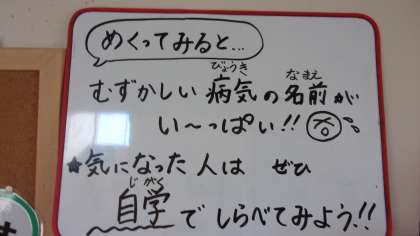 めくってみると…
むずかしい病気の名前が
びょうき なまえ
い〜っぱい!!
★気になった人は ぜひ
じがく
自学でしらべてみよう!!